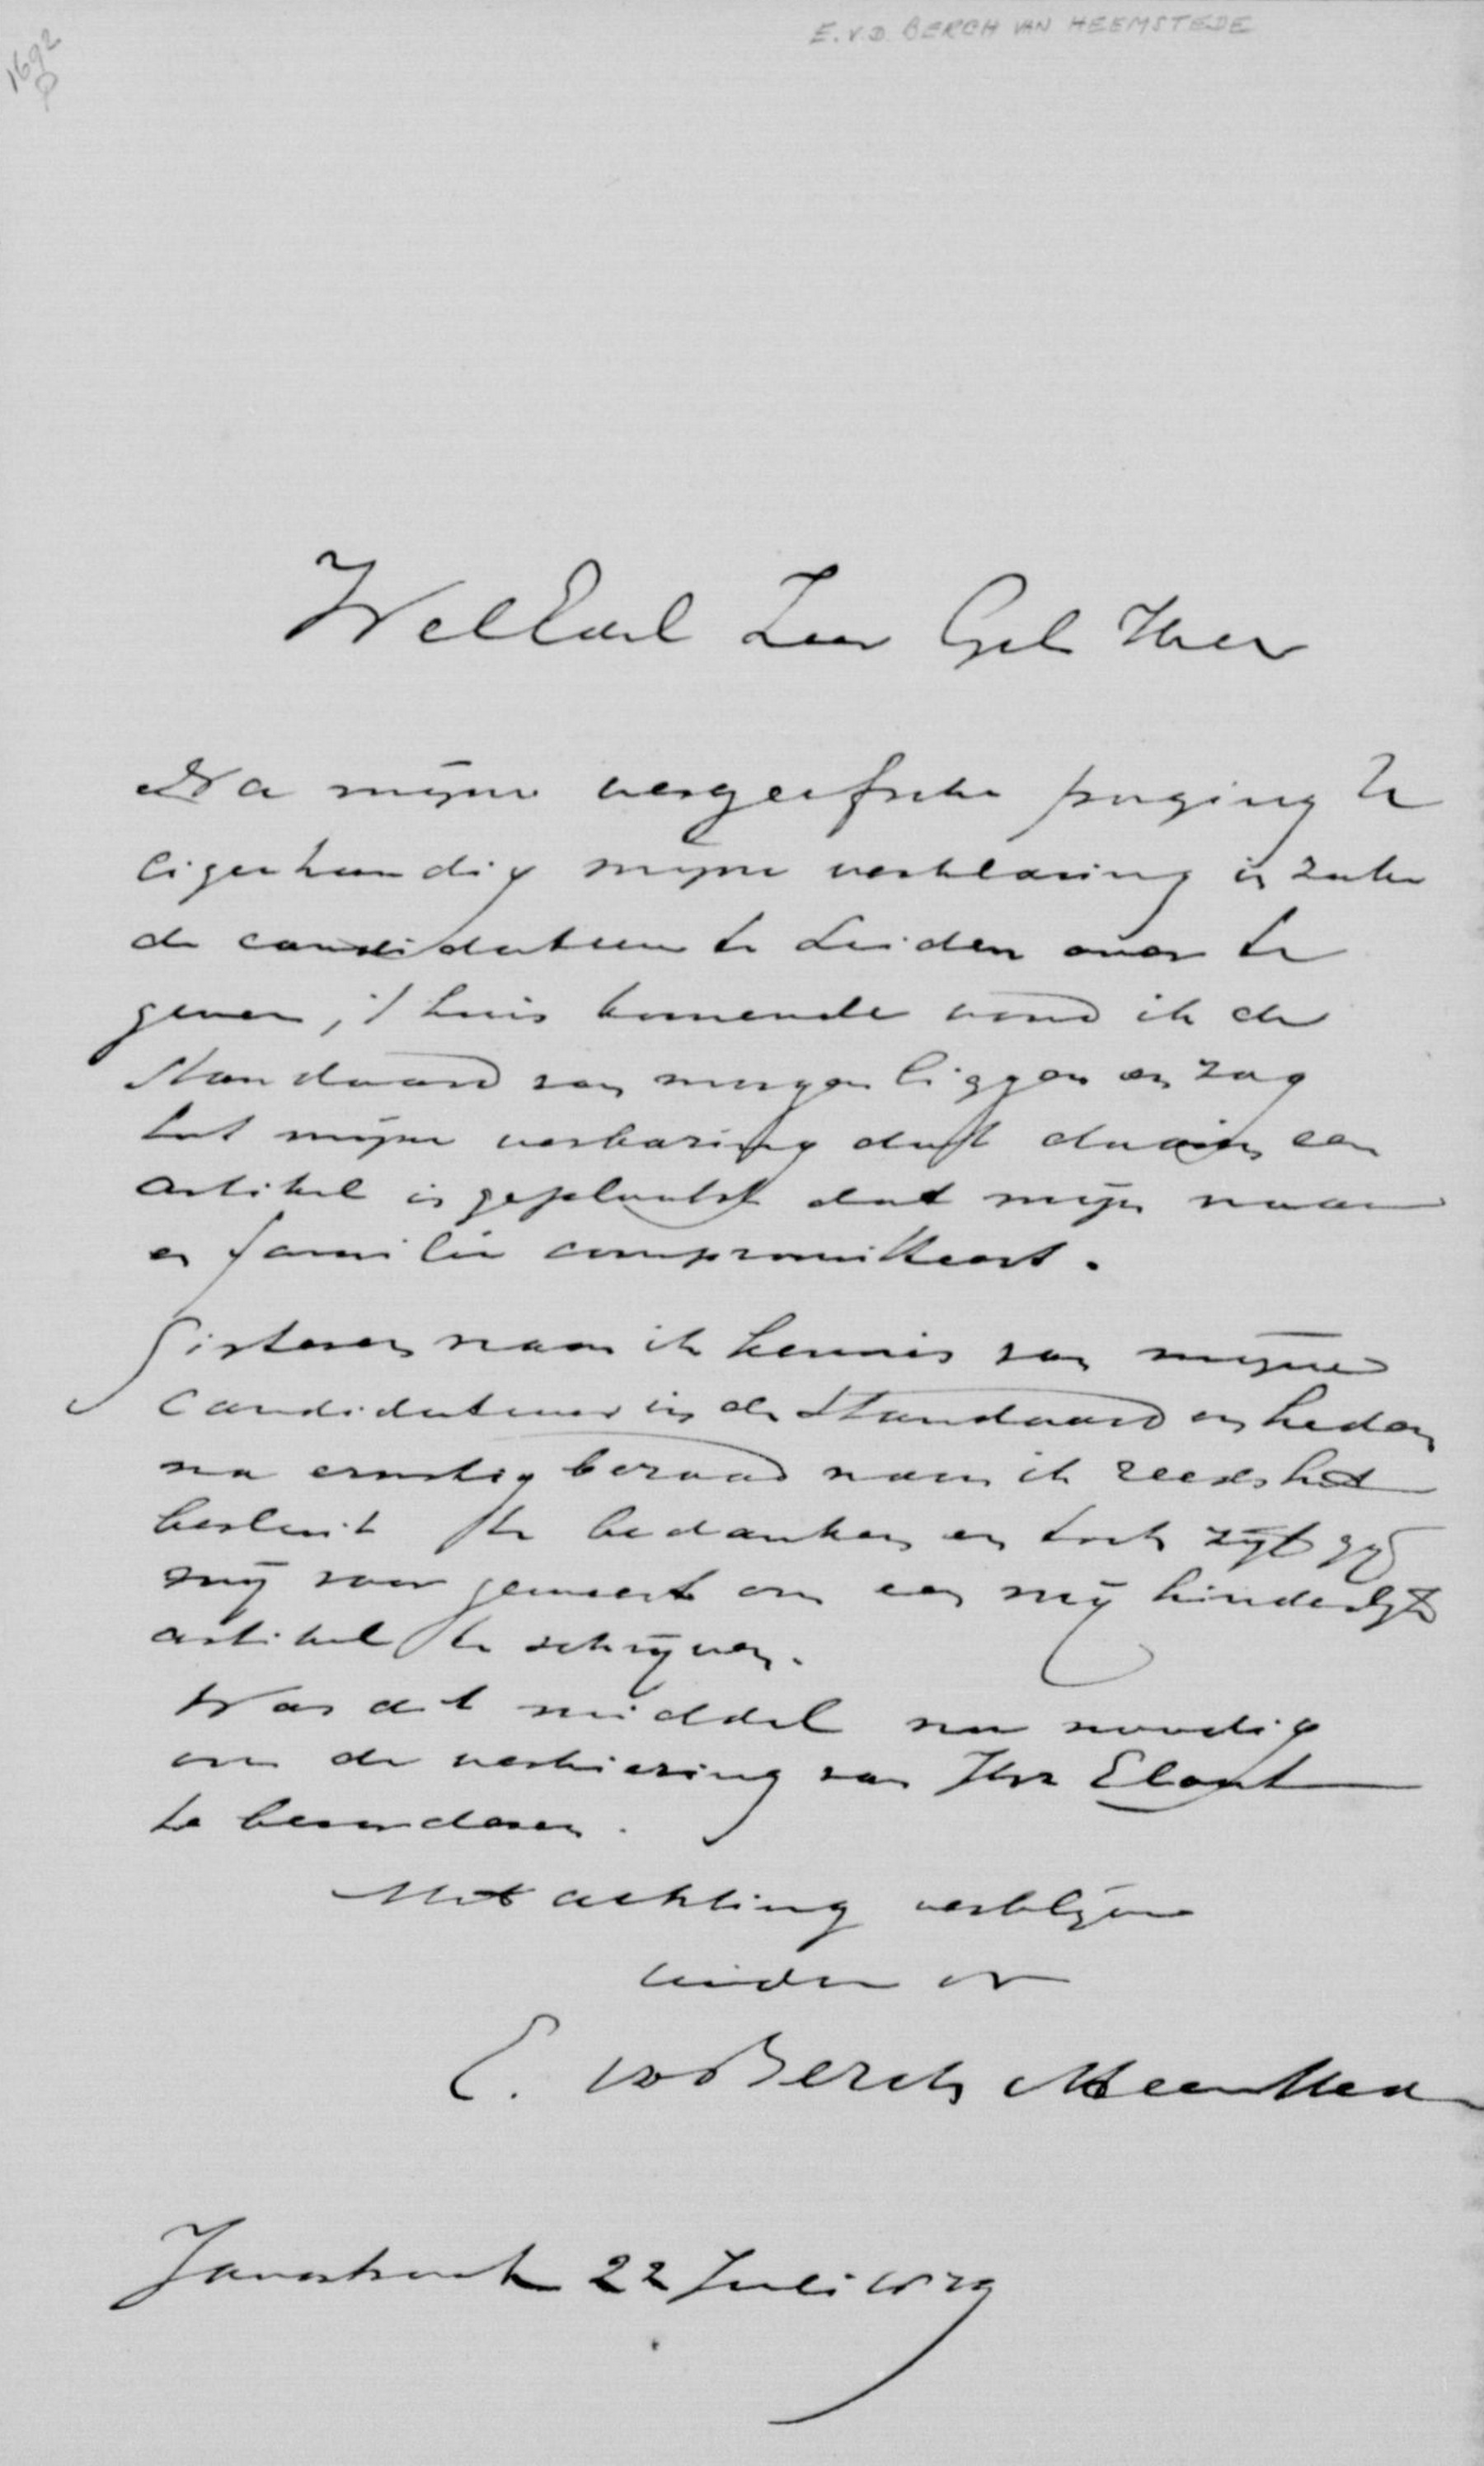 E. V. D. BERCH VAN HEEMSTEDE
1692
WelEdel Zeer Gel Heer
Na mijne vergeefsche poging Us
eigenhandig mijne verklaring in zake
de candidatuur te Leiden over te
geven, t'huis komende vond ik de
Standaard van morgen liggen en zag
tot mijne verbazing dat daarin een
artikel is geplaatst dat mijn naam
en familie compromitteert.
Gisteren nam ik kennis van mijne
candidatuur in de Standaard en heden
na ernstig beraad nam ik reeds het
besluit te bedanken en toch zijt gij
mij voor geweest om een mij hinderlijk
artikel te schrijven.
Was dit middel nu noodig
om de verkiezing van Jhr Elout
te bevorderen.
Met achting verblijve
E. vd Berch v Heemstede
Javastraat 22 Juli 1879